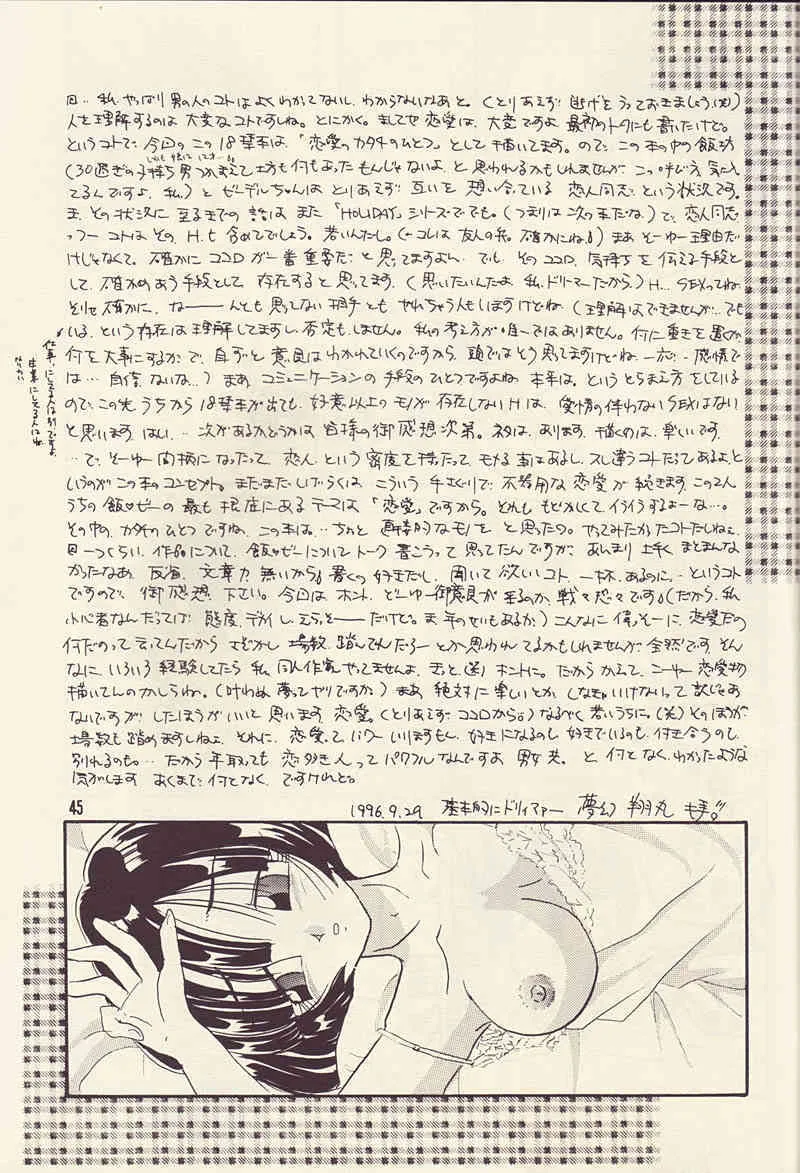 回‥私、やっぱり男の人のコトはよくわかってないし、わからないなあと。(とりあえず 逃げをうっておきましょう(笑))
人を理解するのは 大変なコトですしね。とにかく。ましてや恋愛は、大変ですよ 最初のトークにも書いたけど。
というコトで、今回の この18禁本は、「恋愛のカタチのひとつ」として 描いてます。ので、この本の中の飯坊
(30過ぎの子持ち男つかまえて坊も何もあったもんじゃないよ、と思われるかもしれませんが、この呼び方、気に入っ
てるんですよ、私)と ゼーデルちゃんは とりあえず 互いを 想い合っている 恋人同志 という状況です。
ま、その状況に 至るまでの 話は また 「HOLIDAY」シリーズででも。(つまりは次の本だな)で、恋人同志
っつーコトは その、H、も 含めてでしょう。若いんだし。(←コレは 友人の弁。確かにね)まあ そーゆー理由だ
けじゃなくて、確かに ココロが一番 重要だ と思ってますよ‥ でも、そのココロ、気持ちを 伝える手段と
して、確かめあう手段として 存在すると 思ってます。(思いたいんだよ 私、ドリーマーだから)H‥ SEXってね。
そりゃ確かに、な——んとも 思ってない相手とも やれちゃう人もいますけどね(理解はできませんが‥でも
いる、という存在は理解してますし、否定も、しません。私の考え方が唯一ではありません。何に重きを置くか、
仕事、にしてる人は別ですよ
何を大事にするか で、自ずと 意見は わかれていくのですから 頭ではそう思ってますけどね 一応‥感情で
は‥ 自信 ないな‥)まあ、コミュニケーションの 手段のひとつですよね 本来は。というとらえ方をしている
ので、この先 うちから 18禁本が出ても、好意以上のモノが 存在しないHは、愛情の伴わないSEXはない
と思います、はい。‥ 次があるかどうかは 皆様の御感想次第。ネタは、あります。描くのは、楽しいです。
‥で、そーゆー間柄になったって 恋人、という 密度を持ったって、モメる事はあるし、スレ違うコトだってあるよ、と
いうのが この本のコンセプト。まだまだ しばらくは、こういう 手さぐりで、不器用な 恋愛が 続きます、この2人
うちの 飯♡ゼーの 最も 根底にあるテーマは 「恋愛」ですから。それも もどかしくて イライラするよーな…。
その中の、カタチのひとつ ですね、この本は、‥ちょっと 実験的なモノを と思ったの。やってみたかったコトだしねぇ。
もー一つくらい、作品について、飯♡ゼーについて トーク 書こうって 思ってたんですが、あんまり上手く まとまんな
かったなあ、反省。文章力 無いから 書くの 好きだし、聞いて 欲しいコト、一杯、あるのに‥ というコト
ですので、御感想、下さい。今回は ホント、どーゆー御意見が 来るのか、戦々恐々です(だから、私
小心者なんだってば 態度、デカイし、えらそーだけど。ま 年のせいもあるか)こんなに 偉そーに、恋愛だの
何だのって 言ってんだから さぞかし 場数 踏んでんだろー とか 思われてるかもしれませんが、全然です。そん
なに、いろいろ 経験してたら 私、同人作家 やってませんよ、きっと(笑)ホントに。だから かえって、こーゆー 恋愛物
描いてんのかしらね。(叶わぬ夢ってヤツですか)まあ 絶対に 楽しいとか しなきゃいけないって 訳じゃあ
ないですが したほうがいいと 思います、恋愛。(とりあえず ココロから)なるべく 若いうちに。(笑)そのほうが、
場数も 踏めますしねェ、それに、恋愛って パワー いりますもん、好きになるのも、好きでいるのも、付き合うのも、
別れるのも。‥だから 年取っても 恋多き人って パワフルなんですよ 男女共。と 何となく、わかったような
気がします。あくまで 何となく、ですけれど。
1996.9.29 基本的にドリィマァー 夢幻 翔丸
45